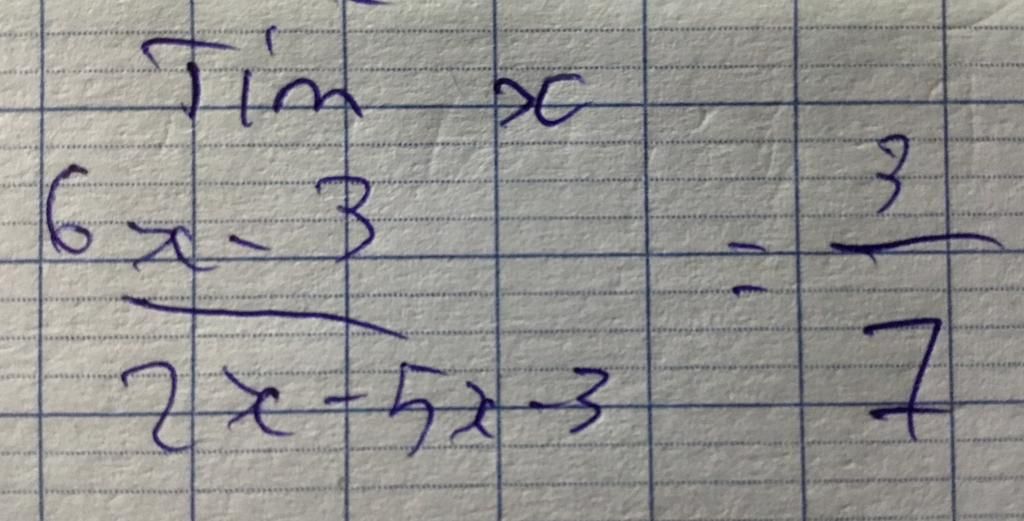 Tìm x
6x - 3 = 3
2x - 5x - 3 7